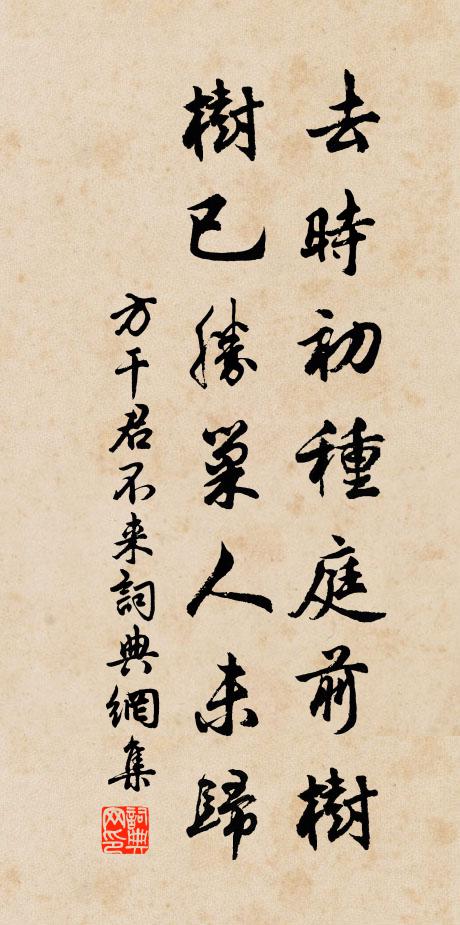 去時初種庭前樹
樹已勝巢人未歸
方干君不来詞典網集
詞典网印